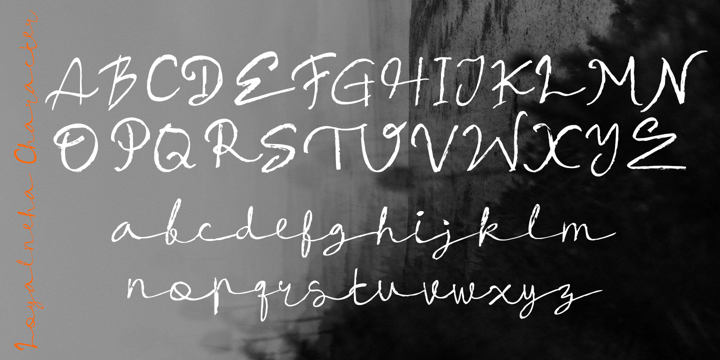 Loyalneha Characters
ABCDEFGHIJKLMN
OPQRSTUVWXYZ
abcdefghijklm
nopqrstuvwxyz